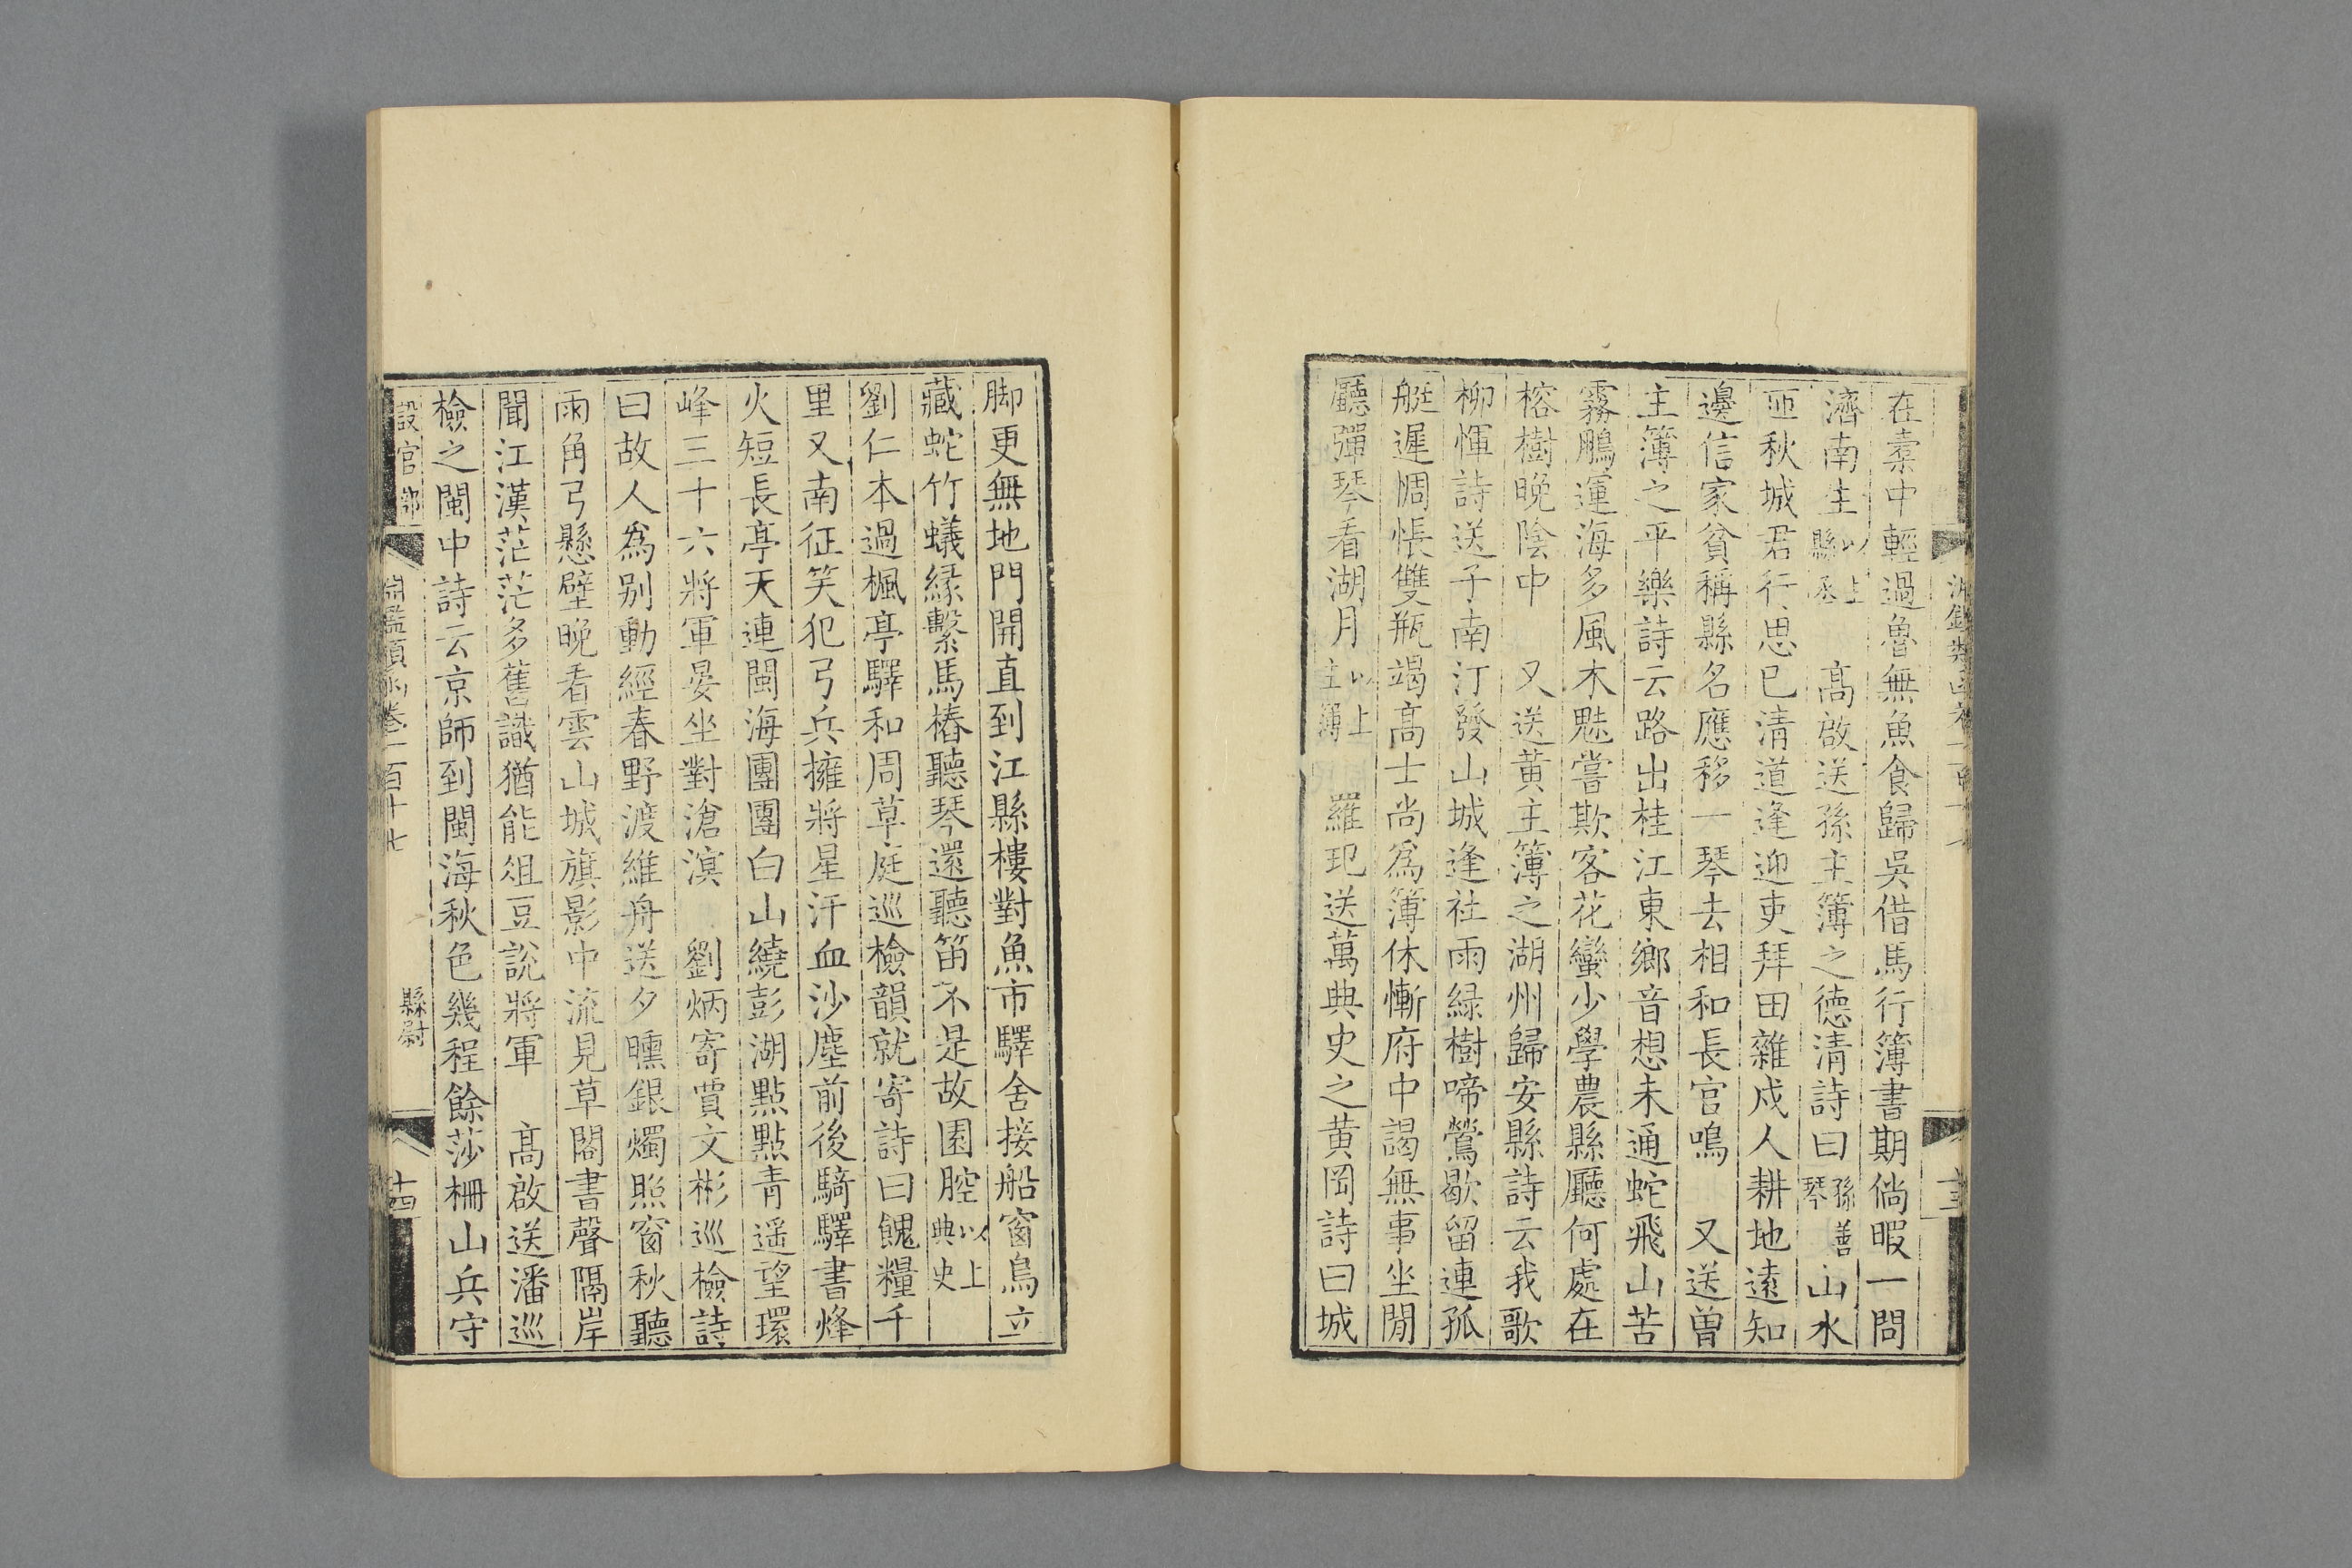 在橐中輕過魯無魚食歸吳借馬行簿書期倘暇一問
濟南生以上縣丞 高啟送孫主簿之德清詩曰孫善琴山水
迊秋城君行思已清道逢迎吏拜田雜戍人耕地遠知
邊信家貧稱縣名應移一琴去相和長官鳴 又送曾
主簿之平樂詩云路出桂江東鄉音想未通蛇飛山苦
霧鵬運海多風木魅嘗欺客花蠻少學農縣廳何處在
榕樹晚陰中 又送黃主簿之湖州歸安縣詩云我歌
柳惲詩送子南汀發山城逢社雨緑樹啼鶯歇留連孤
艇遲惆悵雙瓶竭高士尚爲簿休慚府中謁無事坐閒
廳彈琴看湖月以上主簿 羅玘送萬典史之黄岡詩曰城
脚更無地門開直到江縣樓對魚市驛舍接船窗鳥立
藏蛇竹蟻緣繫馬樁聽琴還聽笛不是故園腔以上典史
劉仁本過楓亭驛和周草庭巡檢韻就寄詩曰餽糧千
里又南征笑犯弓兵擁將星汗血沙塵前後騎驛書烽
火短長亭天連閩海團團白山繞彭湖點點青遥望環
峰三十六將軍晏坐對滄溟 劉炳寄賈文彬巡檢詩
曰故人爲别動經春野渡維舟送夕曛銀燭照窗秋聽
雨角弓懸壁晚看雲山城旗影中流見草閣書聲隔岸
聞江漢茫茫多舊識猶能俎豆說將軍 高啟送潘巡
檢之閩中詩云京師到閩海秋色幾程餘莎柵山兵守
設官部 淵鑑類函卷一百十七 縣尉 十四